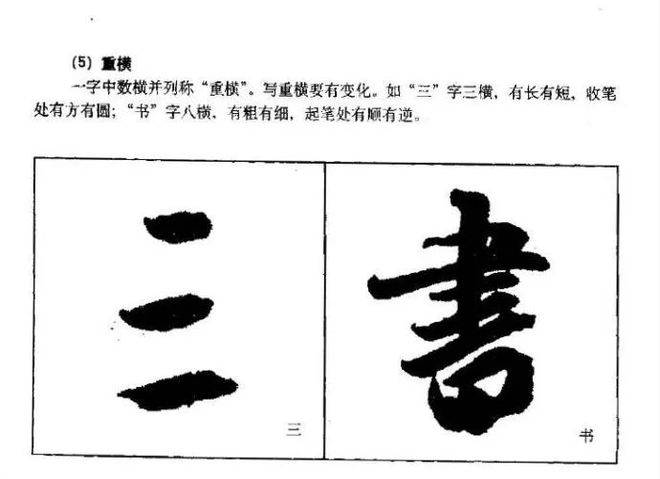 (5) 重横
一字中数横并列称“重横”。写重横要有变化。如“三”字三横，有长有短，收笔
处有方有圆；“书”字八横，有粗有细，起笔处有顺有逆。
三
書
三
书